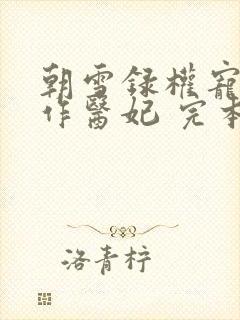 朝雪録權寵
作醫妃 完本
洛青梓